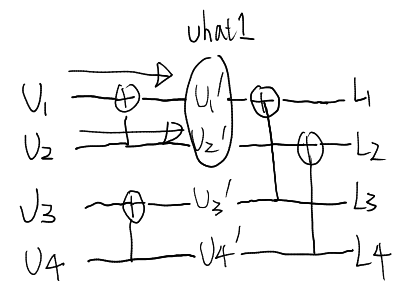 uhat1
U1 U1' L1
U2 U2' L2
U3 U3' L3
U4 U4' L4